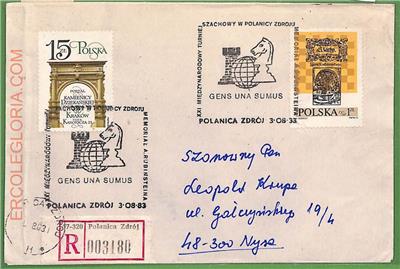 ERCOLEGLORIA.COM
15 ZŁ POLSKA
PORTAL
KAMIENICY
DZIEKAŃSKIEJ
KRAKÓW
SZACHOWY W POLANICY ZDROJU
XXI MIĘDZYNARODOWY TURNIEJ
MEMORIAŁ A.RUBINSTEINA
GENS UNA SUMUS
POLANICA ZDRÓJ 3·08·83
POLSKA
SZACHOWY W POLANICY ZDROJU
XXI MIĘDZYNARODOWY TURNIEJ
MEMORIAŁ A.RUBINSTEINA
GENS UNA SUMUS
POLANICA ZDRÓJ 3·08·83
57-320 Polanica Zdrój
R 003180
Szanowny Pan
Leopold Krupa
ul. Gałczyńskiego 19/4
48-300 Nysa